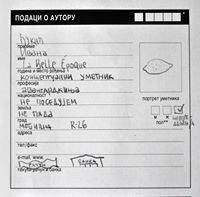 ПОДАЦИ О АУТОРУ
Ђукић
презиме
Ивона
име
La Belle Époque
година и место рођења
концептуални уметник
професија
авангардкиња
националност
не поседујем
земља
не пада
град
R-26
адреса
тел/факс
e-mail, www
БАНКА
текући рачун и банка
портрет уметника
м